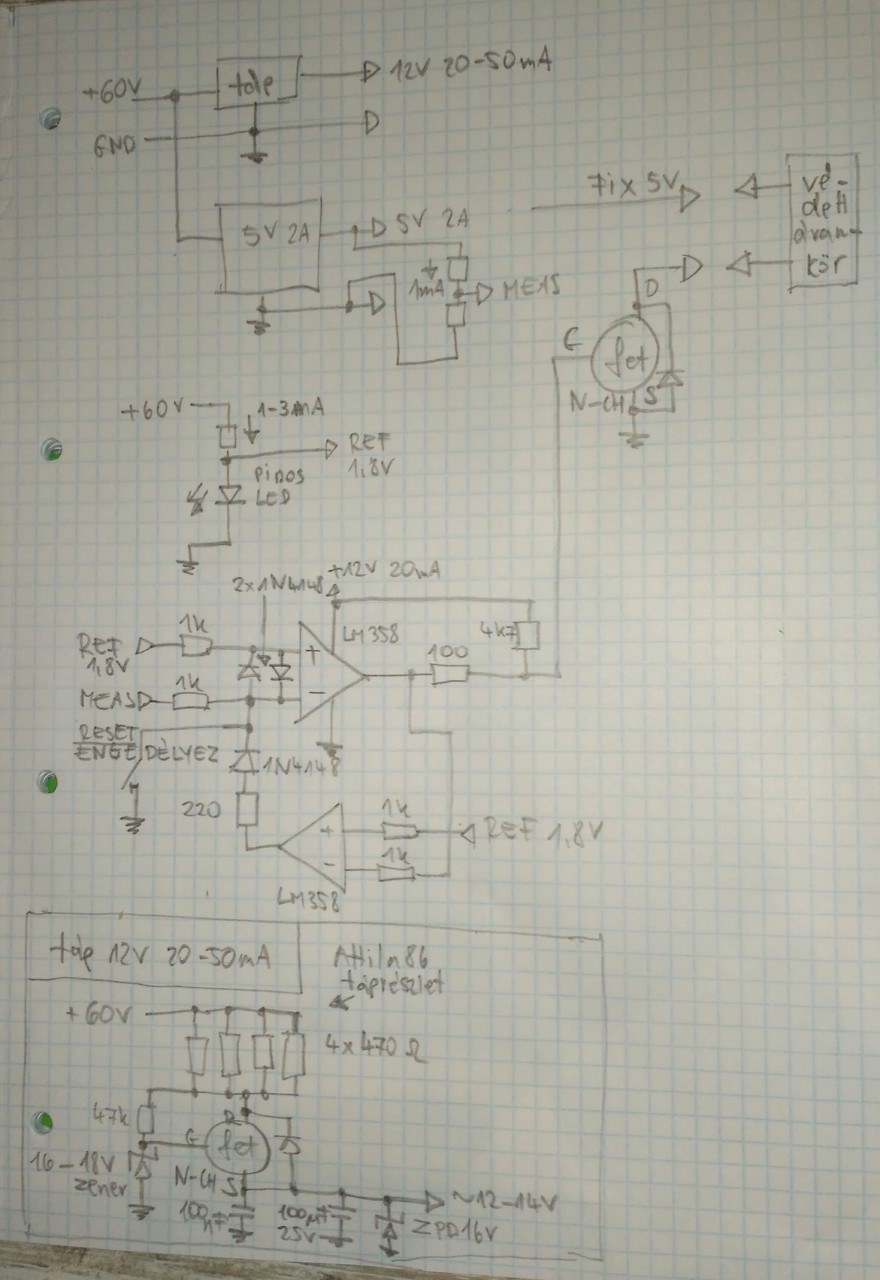 +60V
táp
12V 20-50mA
GND
5V 2A
5V 2A
1mA
MEAS
Fix 5V
vé-
dett
áram-
kör
D
G
fet
N-CH
S
+60V
1-3mA
REF
1,8V
PIROS
LED
2x1N4148
+12V 20mA
REF
1,8V
1k
LM358
4k7
100
+
-
MEAS
1k
RESET
ENGEDÉLYEZ
1N4148
220
+
-
1k
1k
REF 1,8V
LM358
táp 12V 20-50mA
Attila86
táprészlet
+60V
4x470Ω
47k
D
G
fet
16-18V
zener
N-CH
S
100nF
100µF
25V
~12-14V
ZPD16V